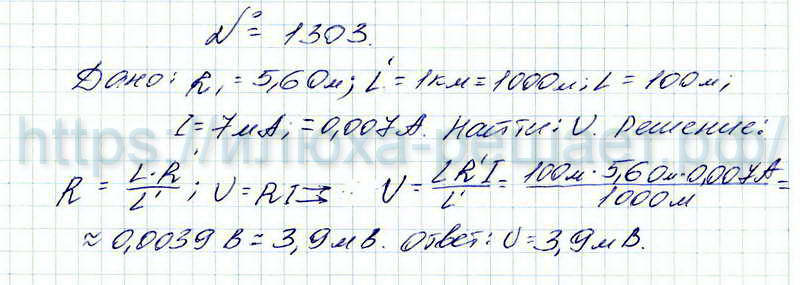 № 1303.
Дано: R₁ = 5,6 Ом; L' = 1 км = 1000 м; L = 100 м;
I = 7 мА; = 0,007 А. Найти: U. Решение:
R = L·R'/L'; U = RI ⇒ U = LR'I/L' = 100 м · 5,6 Ом · 0,007 А/1000 м =
≈ 0,0039 В = 3,9 мВ. Ответ: U = 3,9 мВ.